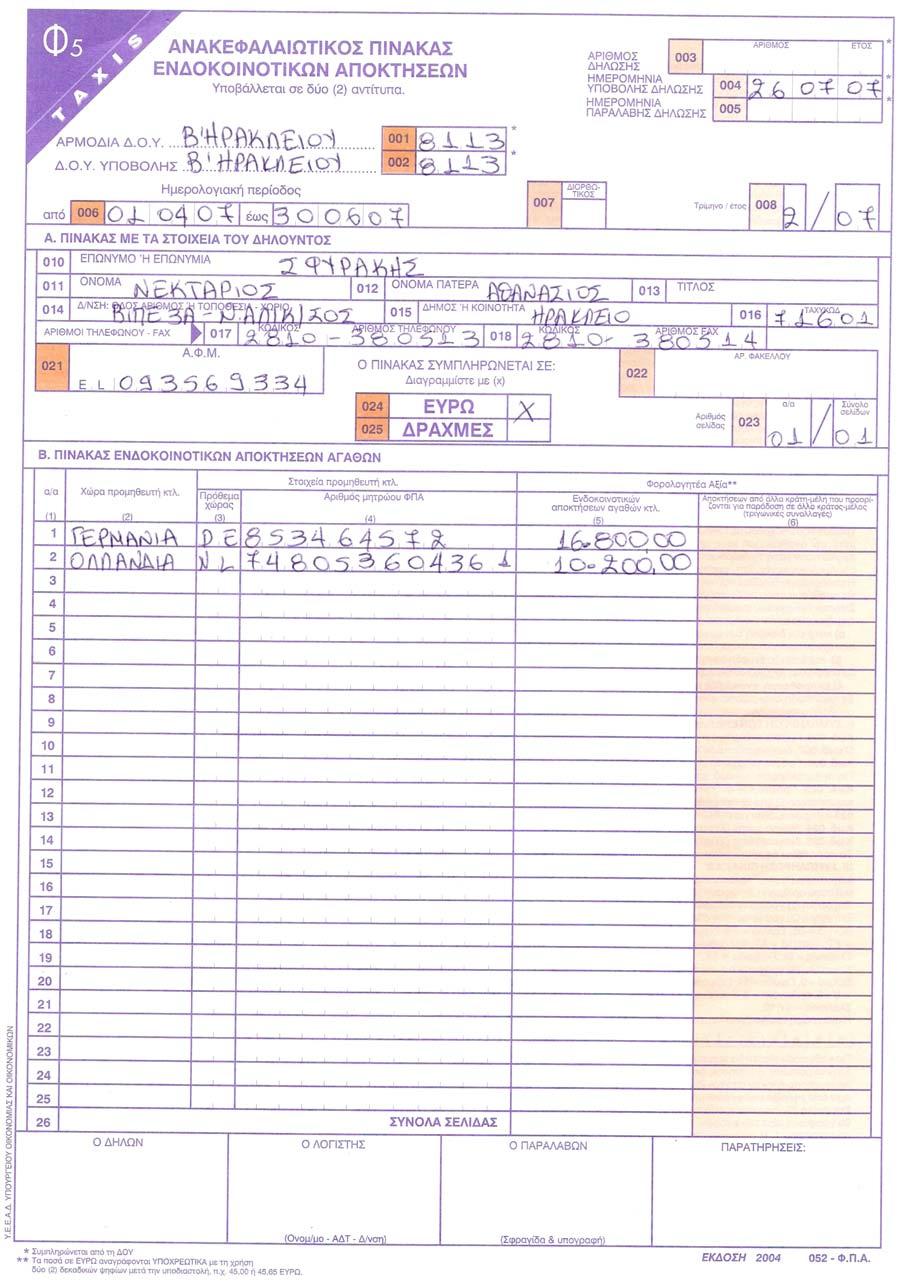 Φ5
TAXIS
ΑΝΑΚΕΦΑΛΑΙΩΤΙΚΟΣ ΠΙΝΑΚΑΣ
ΕΝΔΟΚΟΙΝΟΤΙΚΩΝ ΑΠΟΚΤΗΣΕΩΝ
Υποβάλλεται σε δύο (2) αντίτυπα.
ΑΡΙΘΜΟΣ ΔΗΛΩΣΗΣ 003 ΑΡΙΘΜΟΣ ΕΤΟΣ *
ΗΜΕΡΟΜΗΝΙΑ ΥΠΟΒΟΛΗΣ ΔΗΛΩΣΗΣ 004 26 07 07 *
ΗΜΕΡΟΜΗΝΙΑ ΠΑΡΑΛΑΒΗΣ ΔΗΛΩΣΗΣ 005 *
ΑΡΜΟΔΙΑ Δ.Ο.Υ. Β'ΗΡΑΚΛΕΙΟΥ 001 8113 *
Δ.Ο.Υ. ΥΠΟΒΟΛΗΣ Β'ΗΡΑΚΛΕΙΟΥ 002 8113 *
Ημερολογιακή περίοδος
από 006 01 04 07 έως 30 06 07
007 ΔΙΟΡΘΩ-ΤΙΚΟΣ
Τριμηνο / έτος 008 2 / 07
Α. ΠΙΝΑΚΑΣ ΜΕ ΤΑ ΣΤΟΙΧΕΙΑ ΤΟΥ ΔΗΛΟΥΝΤΟΣ
010 ΕΠΩΝΥΜΟ Ή ΕΠΩΝΥΜΙΑ ΣΦΥΡΑΚΗΣ
011 ΟΝΟΜΑ ΝΕΚΤΑΡΙΟΣ 012 ΟΝΟΜΑ ΠΑΤΕΡΑ ΑΘΑΝΑΣΙΟΣ 013 ΤΙΤΛΟΣ
014 Δ/ΝΣΗ: ΟΔΟΣ ΑΡΙΘΜΟΣ Ή ΤΟΠΟΘΕΣΙΑ - ΧΩΡΙΟ ΒΙΠΕ ΖΑ - Ν.ΑΛΙΚΙΣΟΣ 015 ΔΗΜΟΣ Ή ΚΟΙΝΟΤΗΤΑ ΗΡΑΚΛΕΙΟ 016 ΤΑΧ.ΚΩΔ. 71601
ΑΡΙΘΜΟΙ ΤΗΛΕΦΩΝΟΥ - FAX 017 ΚΩΔΙΚΟΣ ΑΡΙΘΜΟΣ ΤΗΛΕΦΩΝΟΥ 2810 - 380513 018 ΚΩΔΙΚΟΣ ΑΡΙΘΜΟΣ FAX 2810 - 380514
021 Α.Φ.Μ. EL 093569334
Ο ΠΙΝΑΚΑΣ ΣΥΜΠΛΗΡΩΝΕΤΑΙ ΣΕ:
Διαγραμμίστε με (x)
024 ΕΥΡΩ X
025 ΔΡΑΧΜΕΣ
022 ΑΡ. ΦΑΚΕΛΛΟΥ
Αριθμός σελίδας 023 α/α 01 / Σύνολο σελίδων 01
Β. ΠΙΝΑΚΑΣ ΕΝΔΟΚΟΙΝΟΤΙΚΩΝ ΑΠΟΚΤΗΣΕΩΝ ΑΓΑΘΩΝ
Στοιχεία προμηθευτή κτλ. Φορολογητέα Αξία**
α/α Χώρα προμηθευτή κτλ. Πρόθεμα χώρας Αριθμός μητρώου ΦΠΑ Ενδοκοινοτικών αποκτήσεων αγαθών κτλ. Αποκτήσεων από άλλα κράτη-μέλη που προορίζονται για παράδοση σε άλλο κράτος-μέλος (τριγωνικές συναλλαγές)
(1) (2) (3) (4) (5) (6)
1 ΓΕΡΜΑΝΙΑ DE 853464572 16.800,00
2 ΟΛΛΑΝΔΙΑ NL 748053604361 10.200,00
3
4
5
6
7
8
9
10
11
12
13
14
15
16
17
18
19
20
21
22
23
24
25
26 ΣΥΝΟΛΑ ΣΕΛΙΔΑΣ
Ο ΔΗΛΩΝ Ο ΛΟΓΙΣΤΗΣ Ο ΠΑΡΑΛΑΒΩΝ ΠΑΡΑΤΗΡΗΣΕΙΣ:
(Ονομ/μο - ΑΔΤ - Δ/νση) (Σφραγίδα & υπογραφή)
Υ.Ε.Ε.Α.Δ. ΥΠΟΥΡΓΕΙΟΥ ΟΙΚΟΝΟΜΙΑΣ ΚΑΙ ΟΙΚΟΝΟΜΙΚΩΝ
* Συμπληρώνεται από τη ΔΟΥ
** Τα ποσά σε ΕΥΡΩ αναγράφονται ΥΠΟΧΡΕΩΤΙΚΑ με τη χρήση
δύο (2) δεκαδικών ψηφίων μετά την υποδιαστολή, π.χ. 45,00 ή 45,65 ΕΥΡΩ.
ΕΚΔΟΣΗ 2004 052 - Φ.Π.Α.